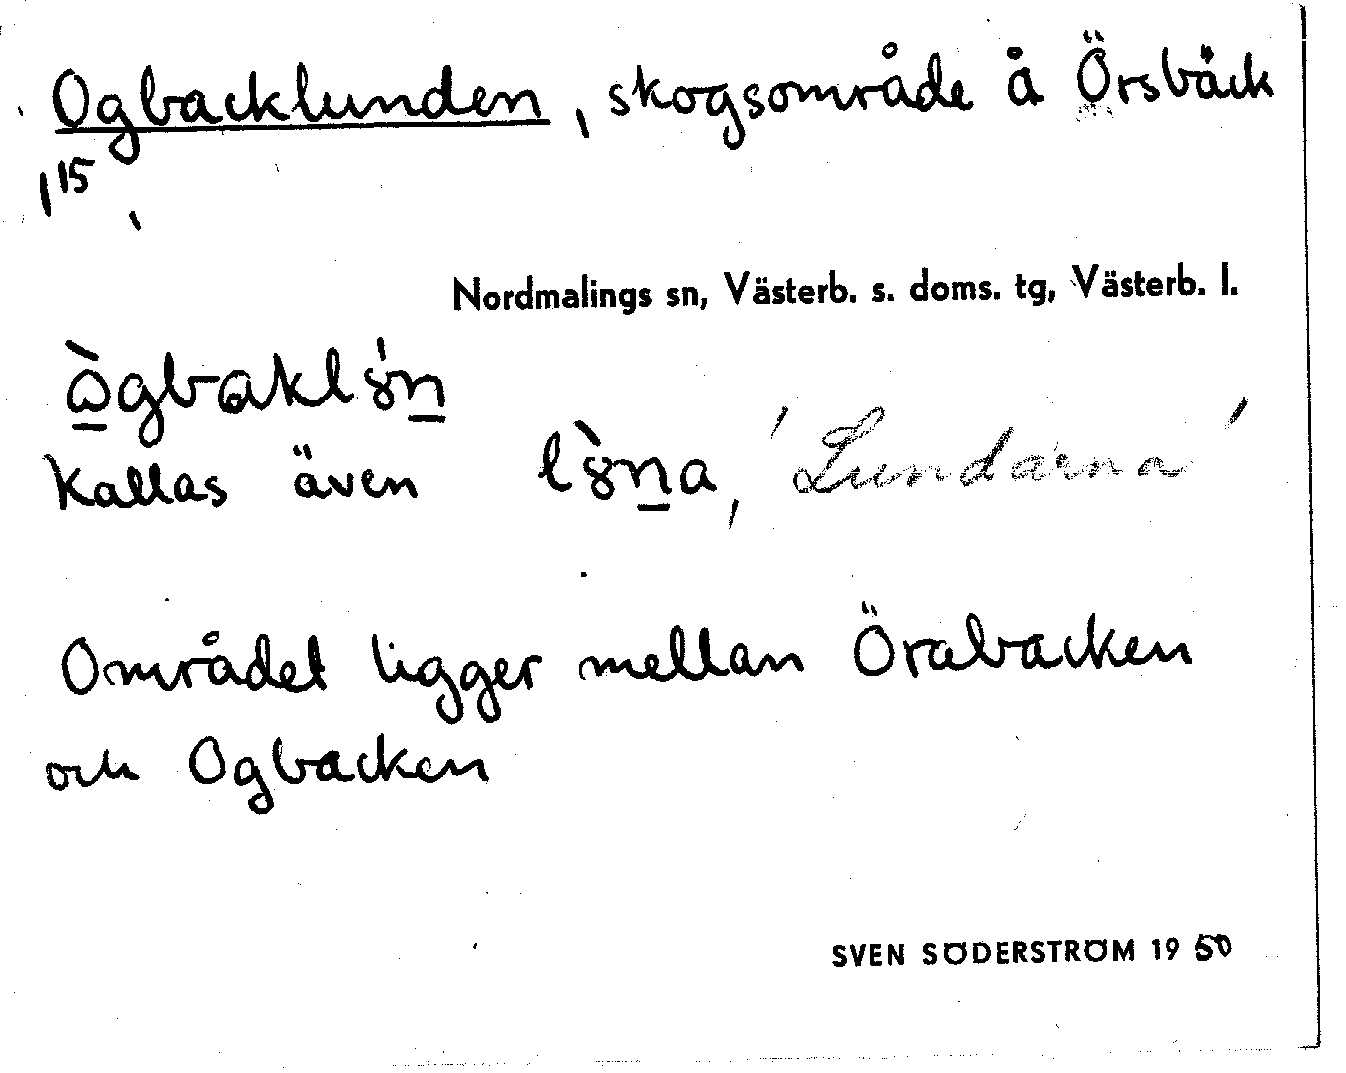 Ogbacklunden, skogsområde å Örsbäck
1 15,
Nordmalings sn, Västerb. s. doms. tg, Västerb. l.
Kallas även 'Lundarna'
Området ligger mellan Örabacken
och Ogbacken
SVEN SÖDERSTRÖM 1950